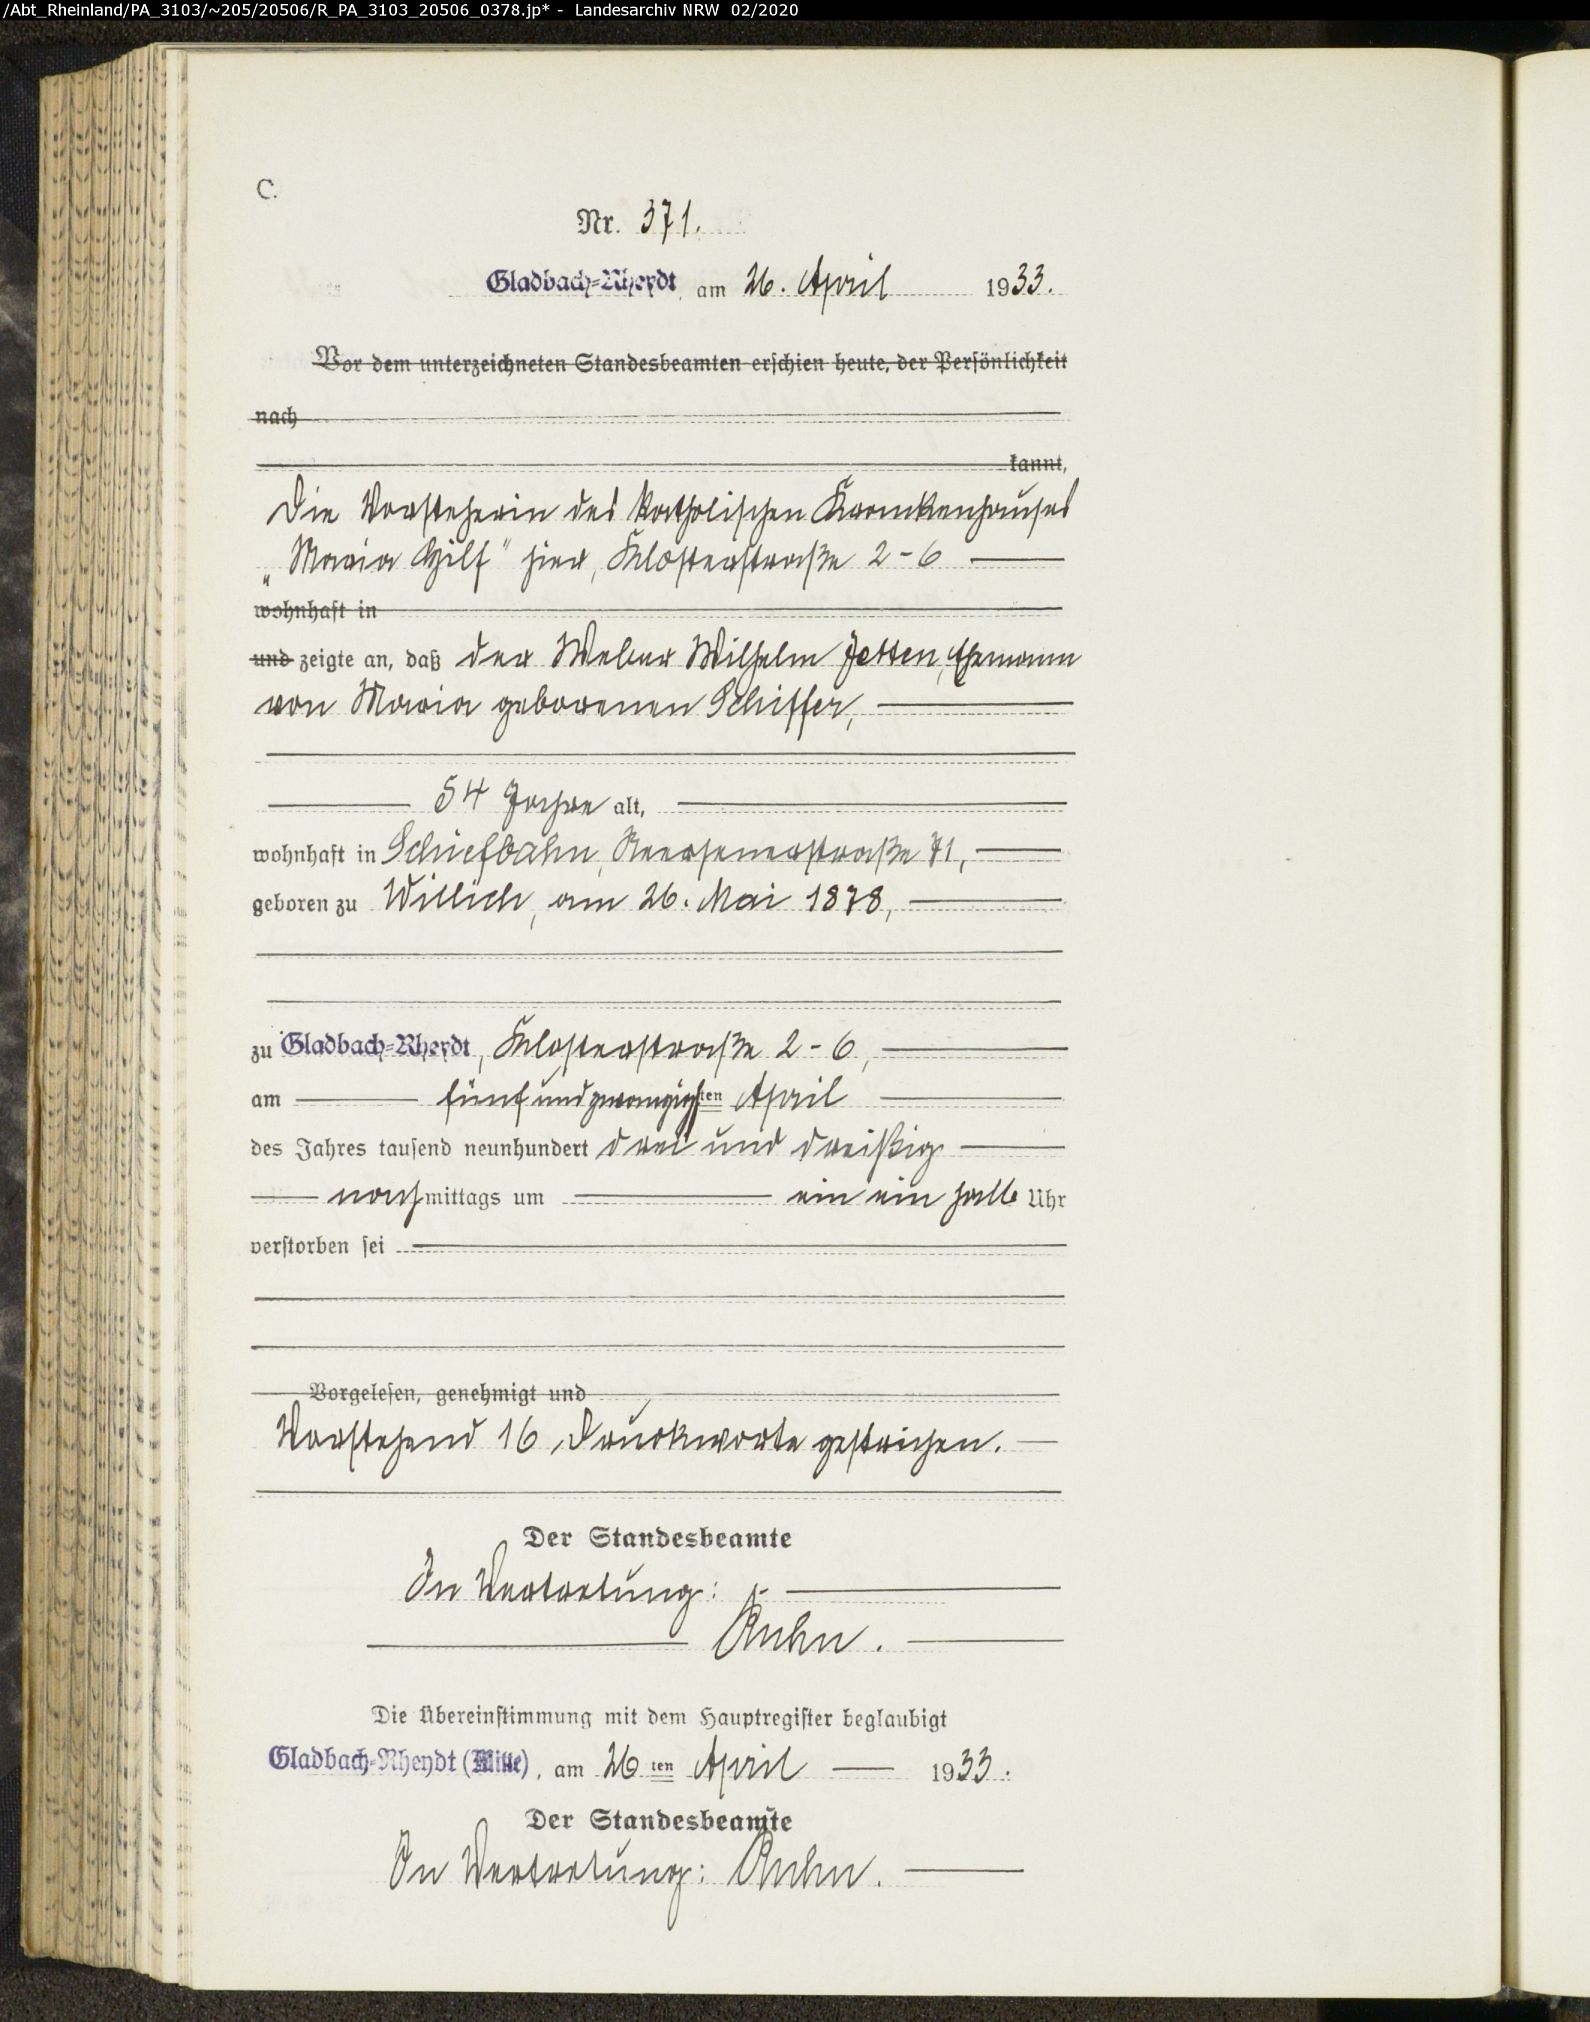 /Abt_Rheinland/PA_3103/~205/20506/R_PA_3103_20506_0378.jp* - Landesarchiv NRW 02/2020
C.
Nr. 371.
Gladbach-Rheydt, am 26. April 1933.
Vor dem unterzeichneten Standesbeamten erschien heute, der Persönlichkeit
nach
kannt,
Die Vorsteherin des katholischen Krankenhauses
„Maria Hilf" hier, Klosterstraße 2-6
wohnhaft in
und zeigte an, daß der Weber Wilhelm Jetten, Ehemann
von Maria geborenen Schiffer,
54 Jahre alt,
wohnhaft in Schiefbahn, Neersenerstraße 71,
geboren zu Willich, am 26. Mai 1878,
zu Gladbach-Rheydt, Klosterstraße 2-6,
am fünfundzwanzigsten April
des Jahres tausend neunhundert drei und dreißig
nachmittags um ein ein halb Uhr
verstorben sei
Vorgelesen, genehmigt und
Vorstehend 16 Druckworte gestrichen.
Der Standesbeamte
In Vertretung:
Die Übereinstimmung mit dem Hauptregister beglaubigt
Gladbach-Rheydt (Mitte), am 26ten April 1933.
Der Standesbeamte
In Vertretung: